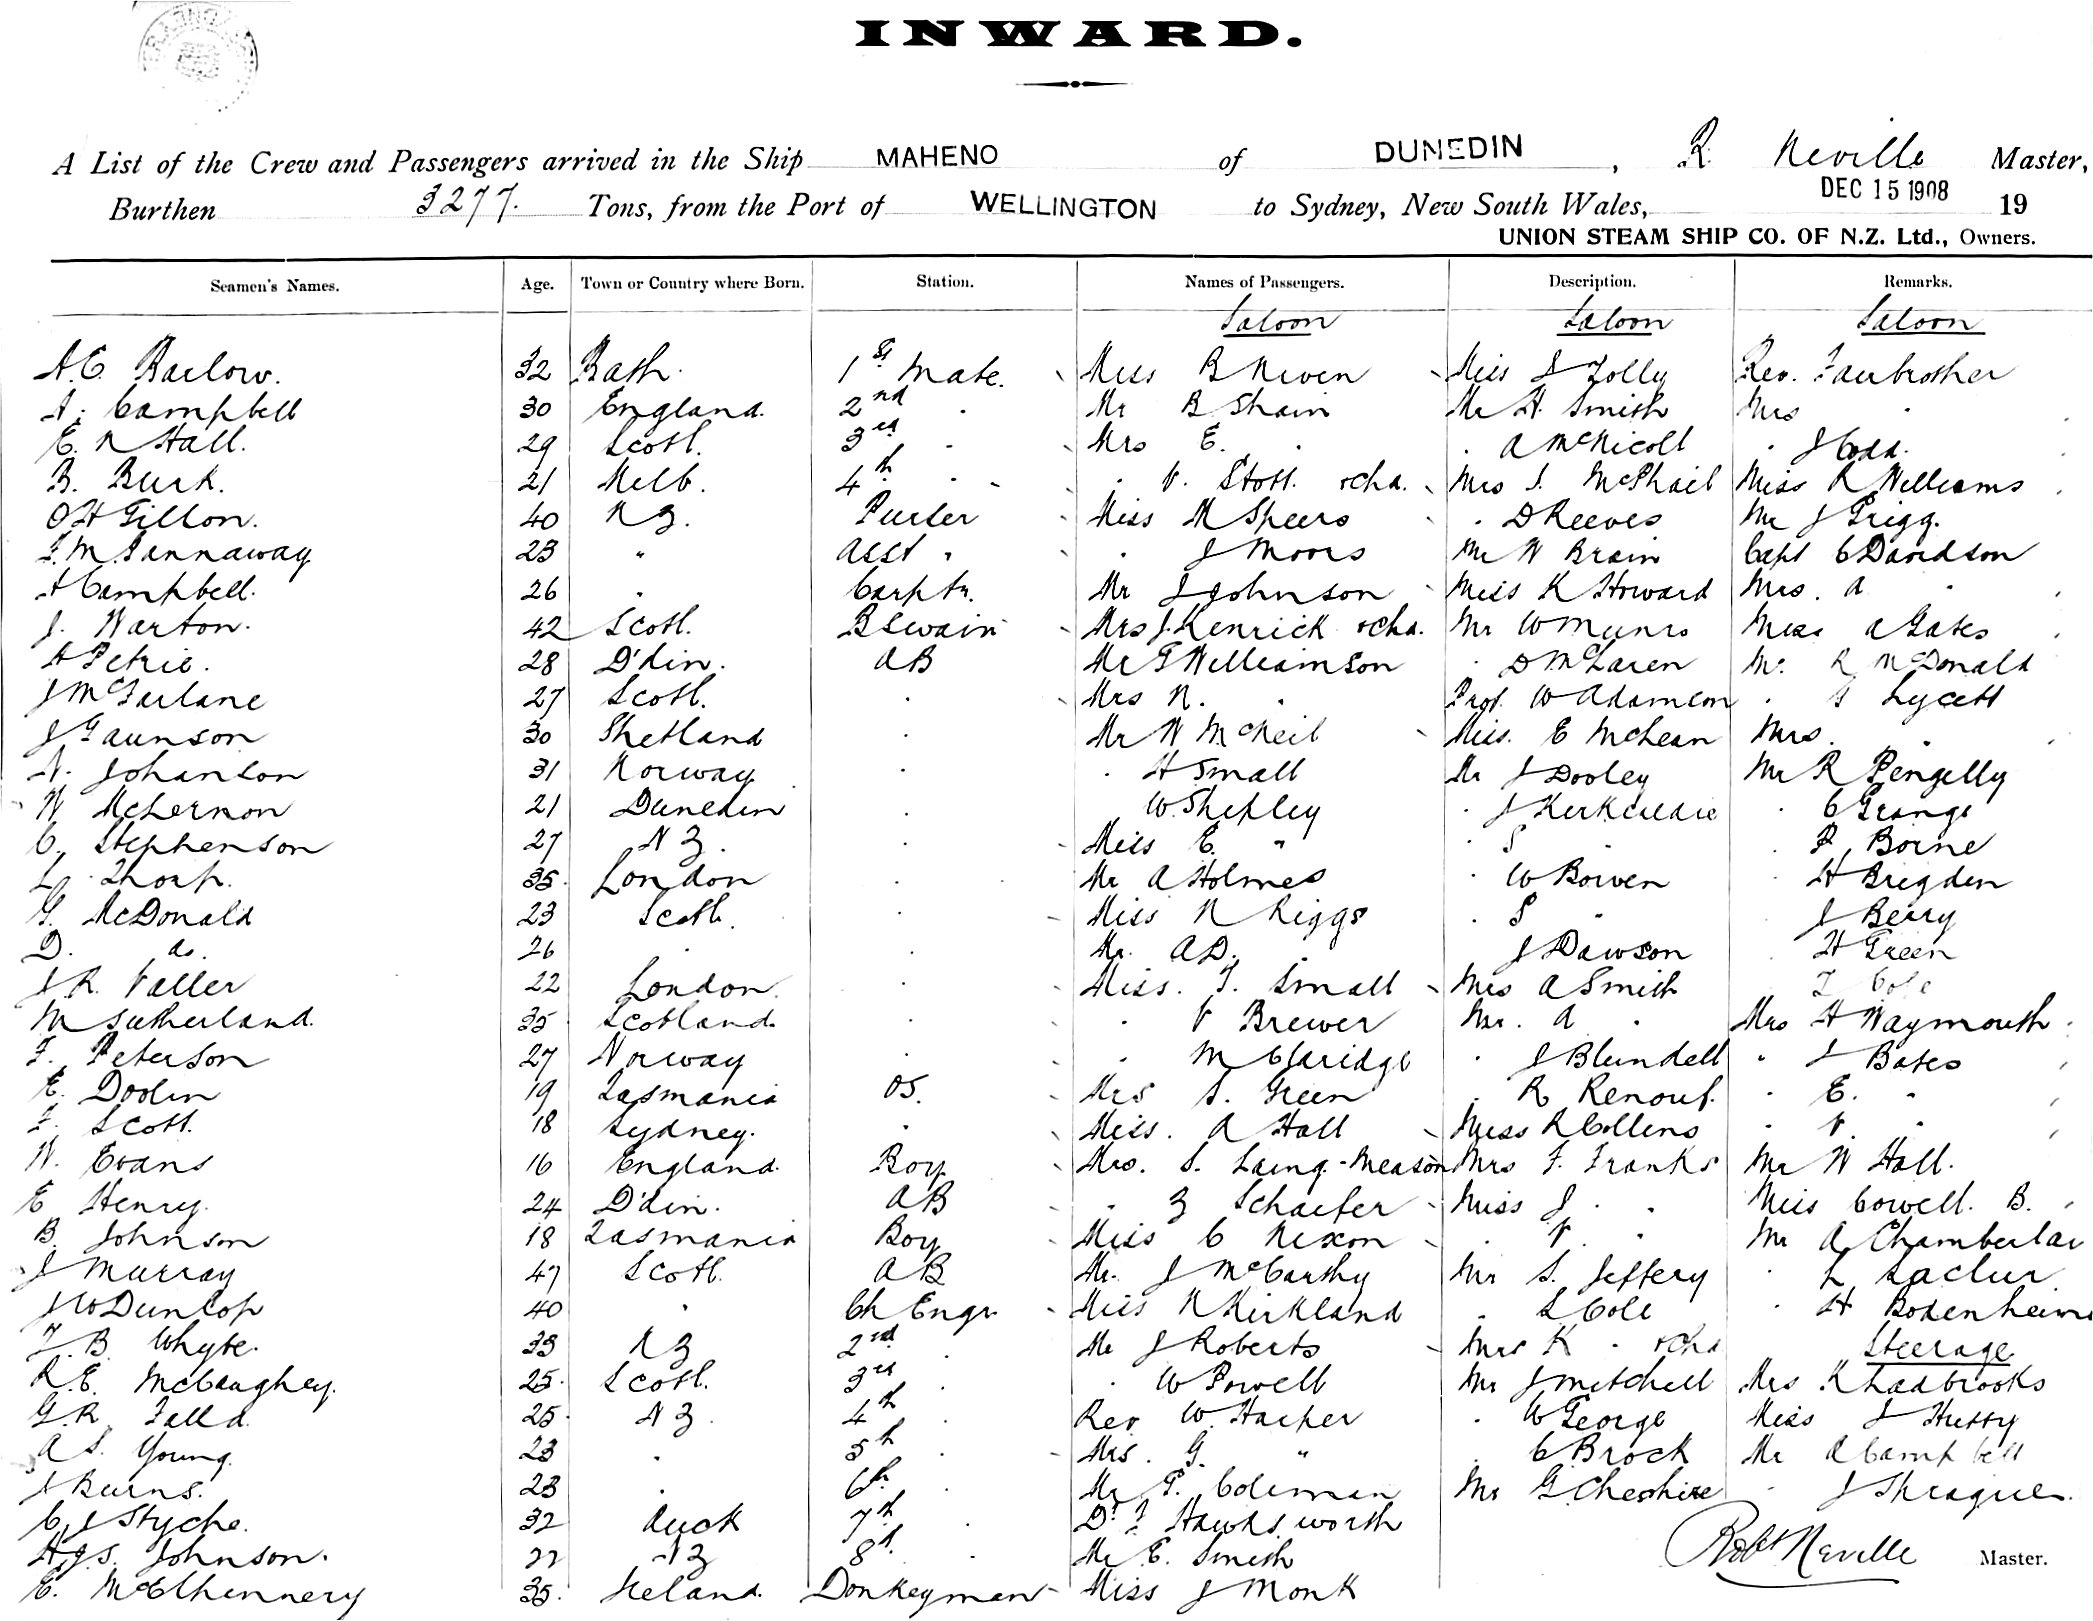 INWARD.
A List of the Crew and Passengers arrived in the Ship MAHENO of DUNEDIN, R. Neville Master,
Burthen 3277. Tons, from the Port of WELLINGTON to Sydney, New South Wales, DEC 15 1908 19
UNION STEAM SHIP CO. OF N.Z. Ltd., Owners.
Seamen's Names. Age. Town or Country where Born. Station. Names of Passengers. Description. Remarks.
Saloon Saloon Saloon
A.E. Barlow. 32 Bath. 1st Mate. Miss B Niven Miss J Jolly Rev. Fairbrother
A. Campbell 30 England. 2nd " Mr B Shain Mr H. Smith Mrs "
E. N Hall. 29 Scotl. 3rd " Mrs E. " " A McNicoll " J Codd.
B. Burk. 21 Melb. 4th " " V. Stott. +chd. Mrs J. McPhail Miss R Williams
O H Gillon. 40 N Z. Purser Miss M Speers " D Reeves Mr J Grigg.
F. M. Jannaway 23 " Asst " " J Moors Mr W Brain Capt C Davidson
A Campbell. 26 " Carptr. Mr J Johnson Miss K Howard Mrs. A "
J. Warton. 42 Scotl. BSwain Mrs J. Kenrick +chd. Mr W Munro Miss A Gates
A Petrie. 28 D'din. AB Mr G Williamson " D McLaren Mr. R McDonald
J McFarlane 27 Scotl. " Mrs N. " Prof. W Adamson " G Lycett
J Gaunson 30 Shetland " Mr W McNeil Miss. E McLean Mrs. "
N. Johanson 31 Norway " " H Small Mr J Dooley Mr R Pengelly
W McLernon 21 Dunedin " W. Shepley " J Kerkcaldie " C Grange
C. Stephenson 27 N Z. " Miss E. " " S " " P. Borne
L. Thorp. 35. London " Mr A Holmes " W Bowen " H Brigden
G. McDonald 23 Scotl. " Miss N Riggs " S " " J Berry
D. do. 26 " " Mr. A D. " J Dawson " H Green
J R. Valler 22 London. " Miss. F. Small Mrs A Smith " T Cole
M Sutherland. 35. Scotland. " " V Brewer Mr. A " Mrs H Waymouth
F. Peterson 27 Norway " " M Claridge " J Blundell " J Bates
E. Doolin 19 Tasmania OS. Mrs S. Green " R Renouf. " E. "
F. Scott. 18 Sydney. " Miss. A Hall Miss R Collens " V. "
W. Evans 16 England. Boy Mrs. S. Laing-Meason Mrs F. Franks Mr W Hall.
E Henry. 24 D'din. AB " Z Schaefer Miss J " Miss Cowell. B.
B. Johnson 18 Tasmania Boy Miss C Nixon " V. " Mr A Chamberlai
J Murray 47 Scotl. AB Mr. J McCarthy Mr S. Jeffery " L
J W Dunlop 40 " Ch Engr. Miss N Kirkland " L Cole " H Bodenheime
T. B. Whyte. 33 N Z 2nd " Mr J Roberts Mrs K " +chd Steerage
R. E. McGaughey. 25. Scotl. 3rd " " W Powell Mr J Mitchell Mrs K Ladbrooks
G. R. Falla. 25. N Z. 4th " Rev W. Harper " W George Miss J Hussy
A S. Young. 23 " 5th " Mrs. G. " " C Brock Mr A Campbell
J Burns. 23 " 6th " Mr P. Coleman Mr G. Cheshire " J Sprague.
C. J Styche. 32 Auck 7th " Dr. F Hawksworth
H. J. S. Johnson. 22 NZ 8th " Mr E. Smith Robt Neville Master.
E. McElhennery 35. Ireland. Donkeyman Miss J Monk